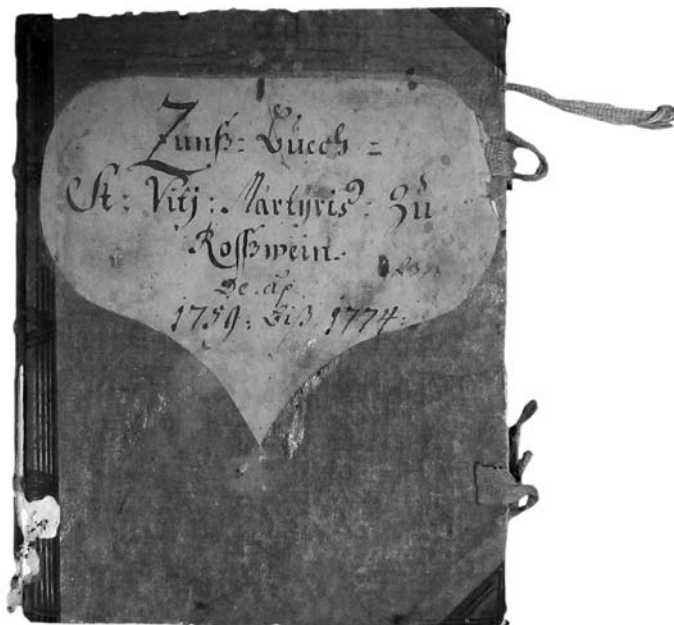 Zinß= Buech =
St: Vitj: Martÿris: Zu
Rossßwein.
De aō
1759: biß 1774: